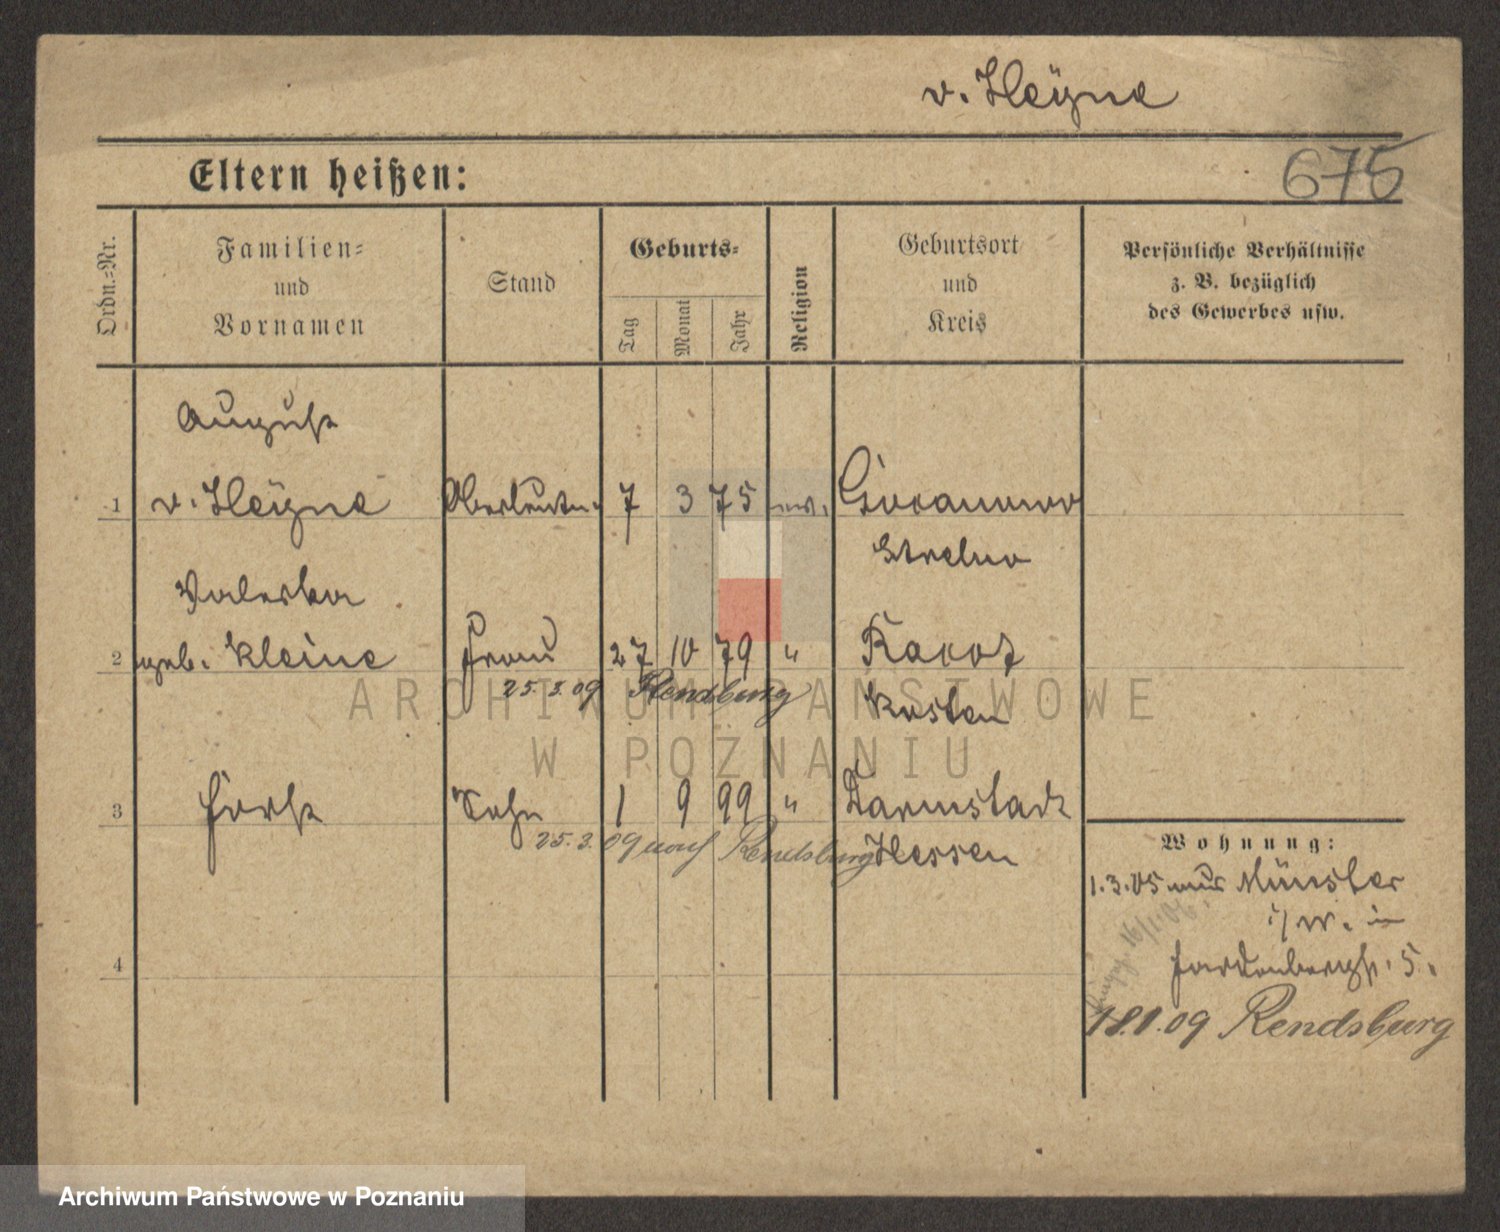 v. Heÿne
Eltern heißen:
675
Ordn.=Nr.
Familien=
und
Vornamen
Stand
Geburts=
Tag
Monat
Jahr
Religion
Geburtsort
und
Kreis
Persönliche Verhältnisse
z. B. bezüglich
des Gewerbes usw.
August
1 v. Heÿne Oberleutn. 7 3 75 ev.
Strelno
Valeska
2 geb. Kleine Frau 27 10 79 " Rakot
25. 3. 09 Rendsburg Kosten
3 Horst Sohn 1 9 99 " Darmstadt
25. 3. 09 nach Rendsburg Hessen
Wohnung:
1. 3. 05 aus Münster
i/W. in
Hardenbergstr. 5.
16/1. 06.
4
18.1.09 Rendsburg
ARCHIWUM PAŃSTWOWE
W POZNANIU
Archiwum Państwowe w Poznaniu